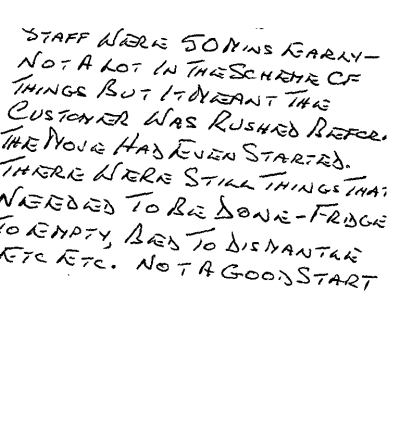 STAFF WERE 50 MINS EARLY-
NOT A LOT IN THE SCHEME OF
THINGS BUT IT MEANT THE
CUSTOMER WAS RUSHED BEFOR.
THE MOVE HAD EVEN STARTED.
THERE WERE STILL THINGS THAT
NEEDED TO BE DONE-FRIDGE
TO EMPTY, BED TO DISMANTLE
ETC ETC. NOT A GOOD START